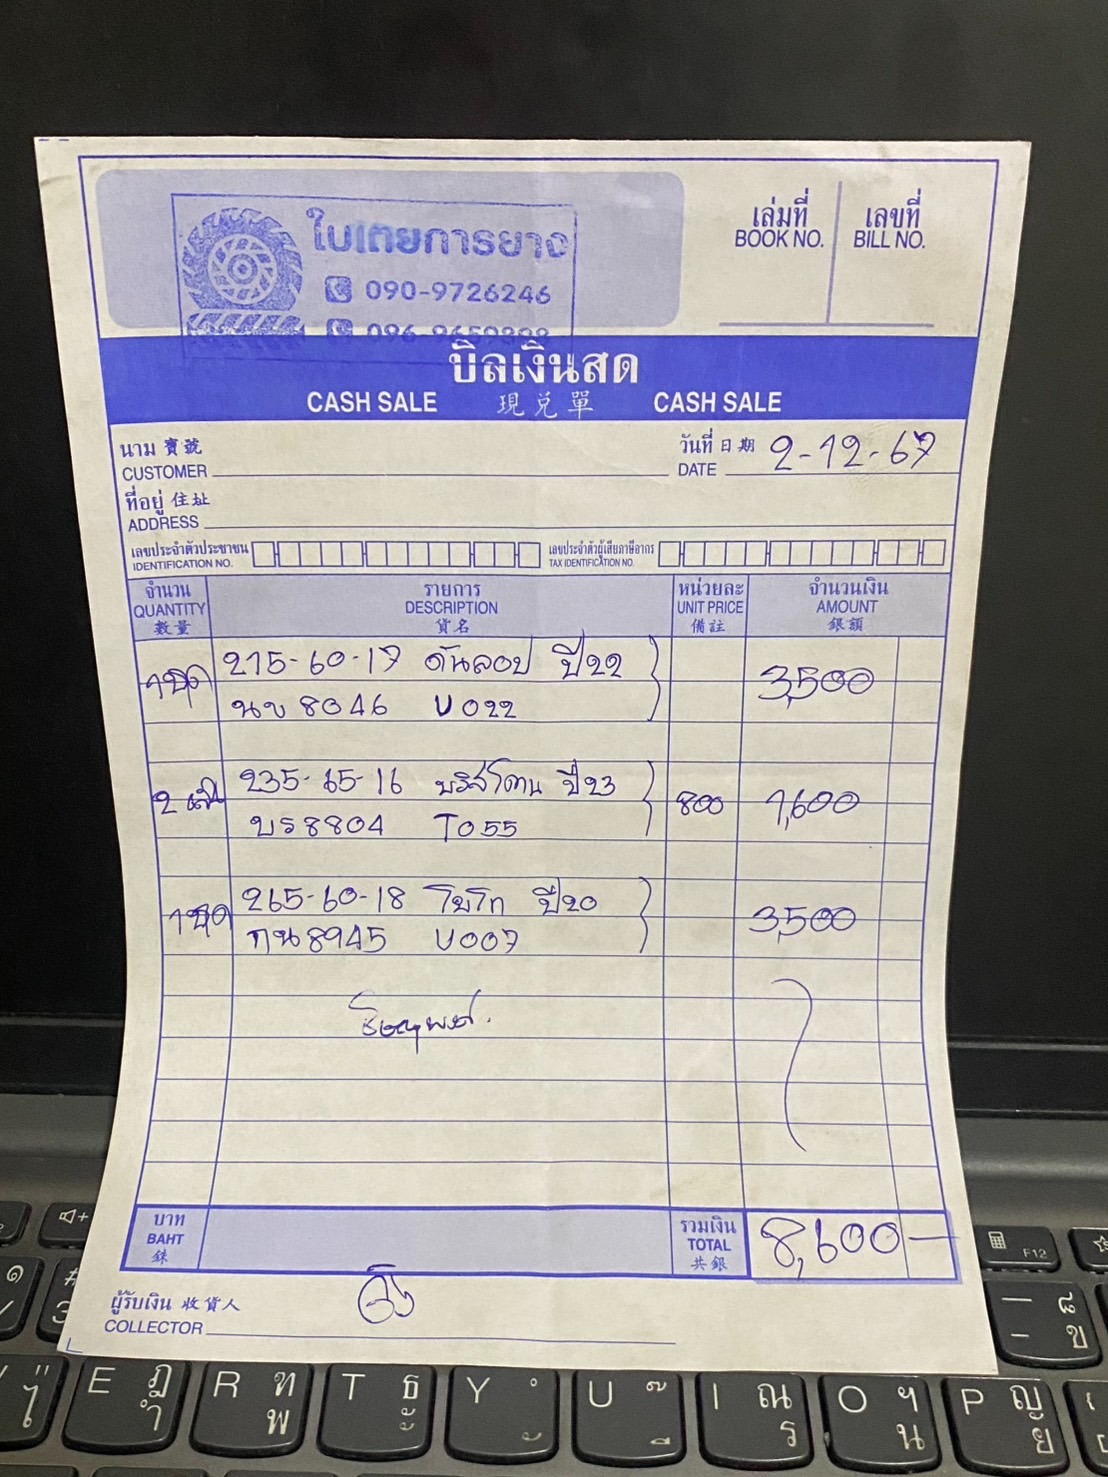 ใบเตยการยาง
090-9726246
เล่มที่
BOOK NO.
เลขที่
BILL NO.
บิลเงินสด
CASH SALE 現兌單 CASH SALE
นาม 寶號
CUSTOMER
วันที่ 日期
DATE 2-12-67
ที่อยู่ 住址
ADDRESS
เลขประจำตัวประชาชน
IDENTIFICATION NO.
เลขประจำตัวผู้เสียภาษีอากร
TAX IDENTIFICATION NO.
จำนวน
QUANTITY
數量
รายการ
DESCRIPTION
貨名
หน่วยละ
UNIT PRICE
備註
จำนวนเงิน
AMOUNT
銀額
1ชุด 215-60-17 ดันลอป ปี22 3,500
นข 8046 U022
2 เส้น 235-65-16 บริสโตน ปี23 800 1,600
บร 8804 T055
1ชุด 265-60-18 โยโก ปี20 3,500
กน 8945 U007
บาท
BAHT
銖
รวมเงิน
TOTAL
共銀
8,600 -
ผู้รับเงิน 收貨人
COLLECTOR
F12
E ฎ
ำ
R ฑ
พ
T ธ
ะ
Y
U ๊
ี
I ณ
ร
O ฯ
น
P ญ
ย